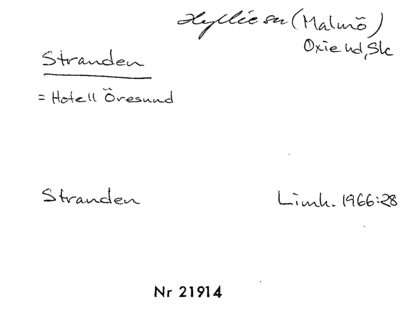 Hyllie sn (Malmö)
Oxie hd, Sk
Stranden
= Hotell Öresund
Stranden Limh. 1966:28
Nr 21914